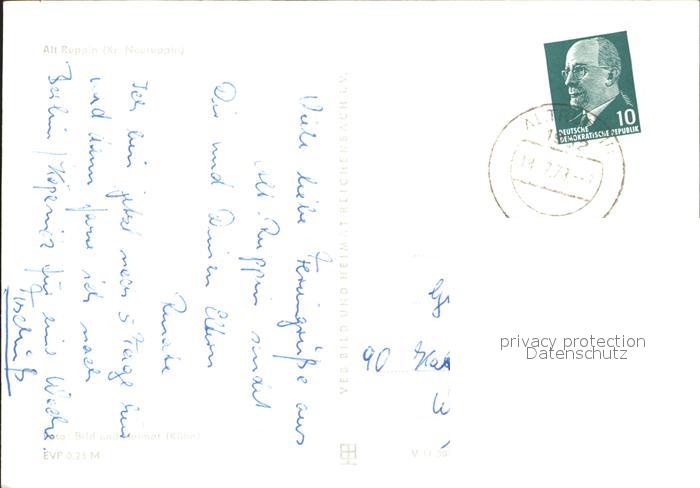 Alt Ruppin (Kr. Neuruppin)
Viele liebe Feriengrüße aus
Alt-Ruppin sendet
Dir und Deinen Eltern
Renate
Ich bin jetzt noch 5 Tage hier
und dann fahre ich nach
Berlin / Köpenick für eine Woche.
Tschüß
Foto: Bild und Heimat (Kühn)
EVP 0,25 M
VEB BILD UND HEIMAT REICHENBACH I. V.
10
DEUTSCHE
DEMOKRATISCHE REPUBLIK
90
privacy protection
Datenschutz